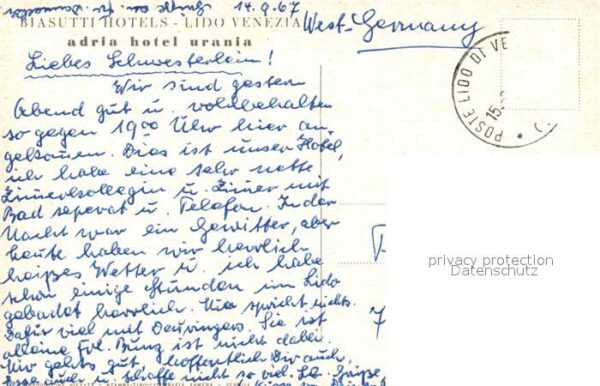 14.9.67
BIASUTTI HOTELS - LIDO VENEZIA
adria hotel urania
West-Germany
Liebes Schwesterlein!
POSTE LIDO DI VE
15.
Wir sind gestern
Abend gut u. wohlbehalten
so gegen 19 00 Uhr hier an-
gekommen. Dies ist unser Hotel,
ich habe eine sehr nette
Zimmerkollegin u. Zimmer mit
Bad seperat u. Telefon. In der
Nacht war ein Gewitter, aber
heute haben wir herrlich
heißes Wetter u. ich habe
schon einige Stunden im Lido
gebadet herrlich. spricht nichts.
Dafür viel mit Sie ist
alleine Frl. Bung ist nicht dabei.
Mir gehts gut hoffentlich Dir auch,
u. schaffe nicht so viel. Lb. Grüße,
privacy protection
Datenschutz